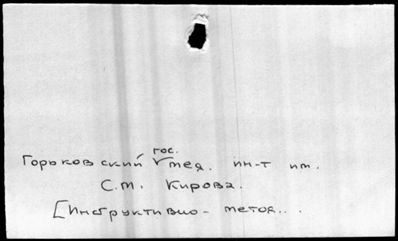 Горьковский гос. мед. ин-т им.
С.М. Кирова.
[Инструктивно- метод...